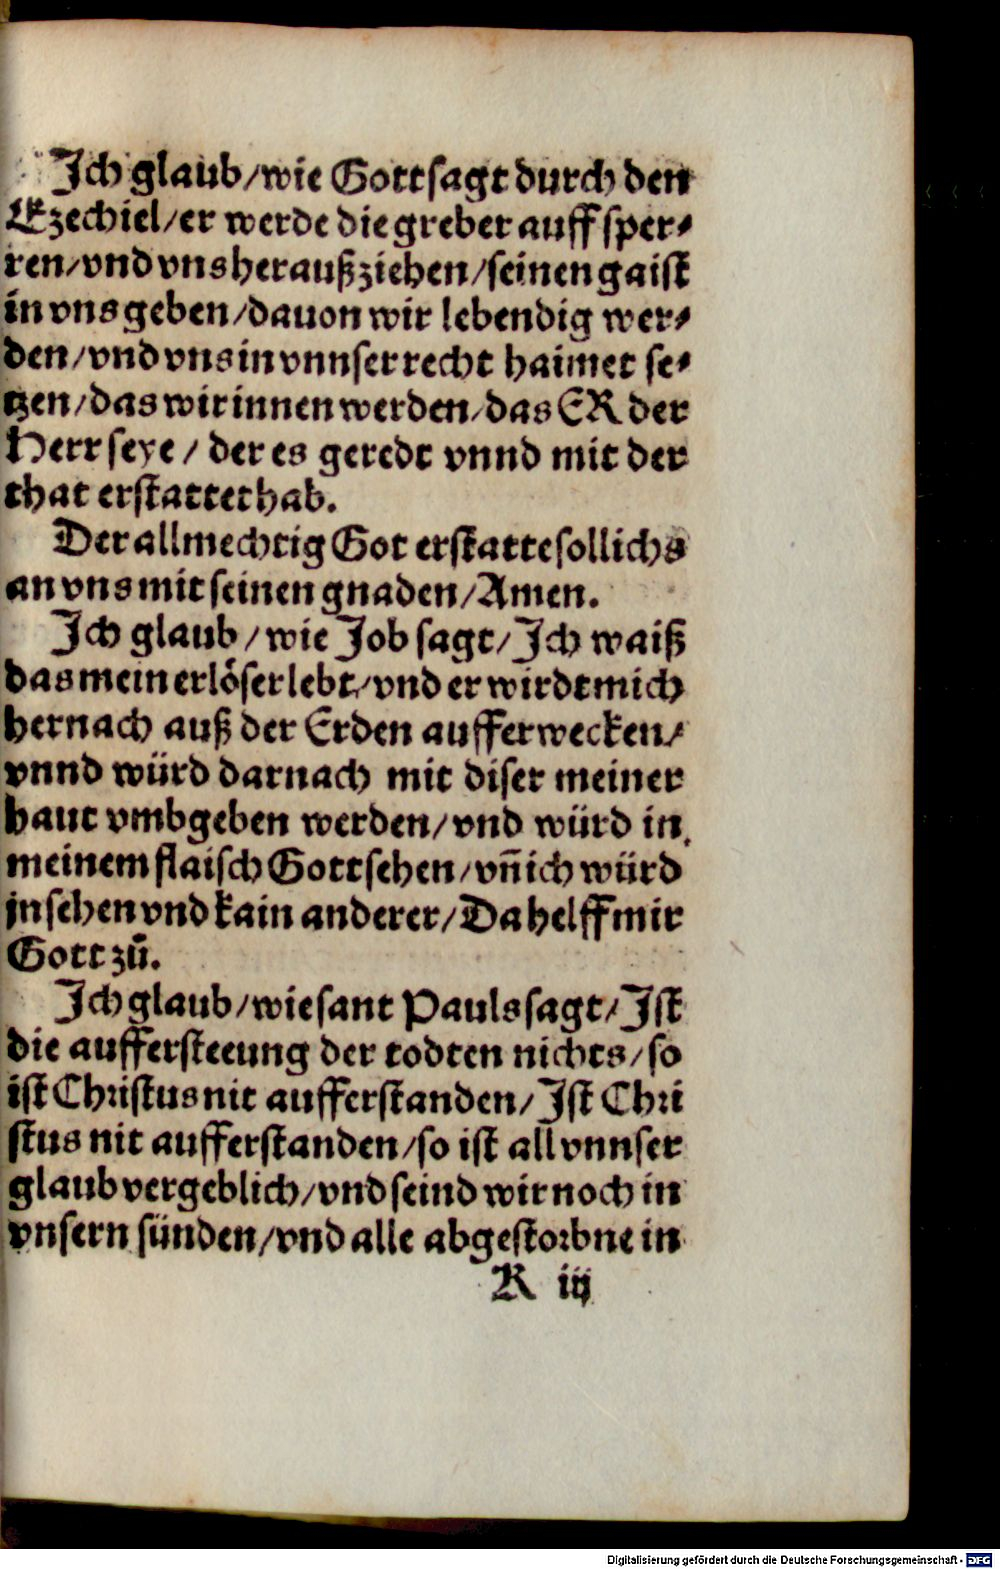 Ich glaub/wie Gott sagt durch den
Ezechiel/er werde die greber auff sper⸗
ren/vnd vns heraußziehen/seinen gaist
in vns geben/dauon wir lebendig wer⸗
den/vnd vns in vnnser recht haimet se⸗
tzen/das wir innen werden/das ER der
Herr seye/ der es geredt vnnd mit der
that erstattet hab.
Der allmechtig Got erstatte sollichs
an vns mit seinen gnaden/Amen.
Ich glaub/wie Job sagt/Ich waiß
das mein erlöser lebt/vnd er wirdt mich
hernach auß der Erden aufferwecken/
vnnd würd darnach mit diser meiner
haut vmbgeben werden/vnd würd in
meinem flaisch Gott sehen/vn̄ ich würd
jn sehen vnd kain anderer/Da helff mir
Gott zů.
Ich glaub/wie sant Pauls sagt/Ist
die auffersteeung der todten nichts/so
ist Christus nit aufferstanden/Ist Chri
stus nit aufferstanden/so ist all vnnser
glaub vergeblich/vnd seind wir noch in
vnsern sünden/vnd alle abgestorbne in
R iij
Digitalisierung gefördert durch die Deutsche Forschungsgemeinschaft - DFG